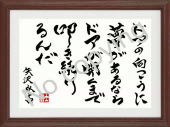 ドアの向こうに
夢があるなら
ドアが開くまで
叩き続け
るんだ
矢沢永吉